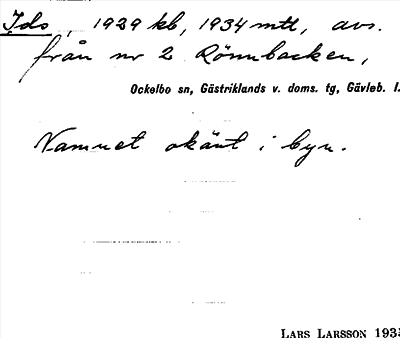 Ids, 1929 kb, 1934 mtl, avs.
från nr 2 Rönnbacken,
Ockelbo sn, Gästriklands v. doms. tg, Gävleb. l.
Namnet okänt i byn.
LARS LARSSON 1935